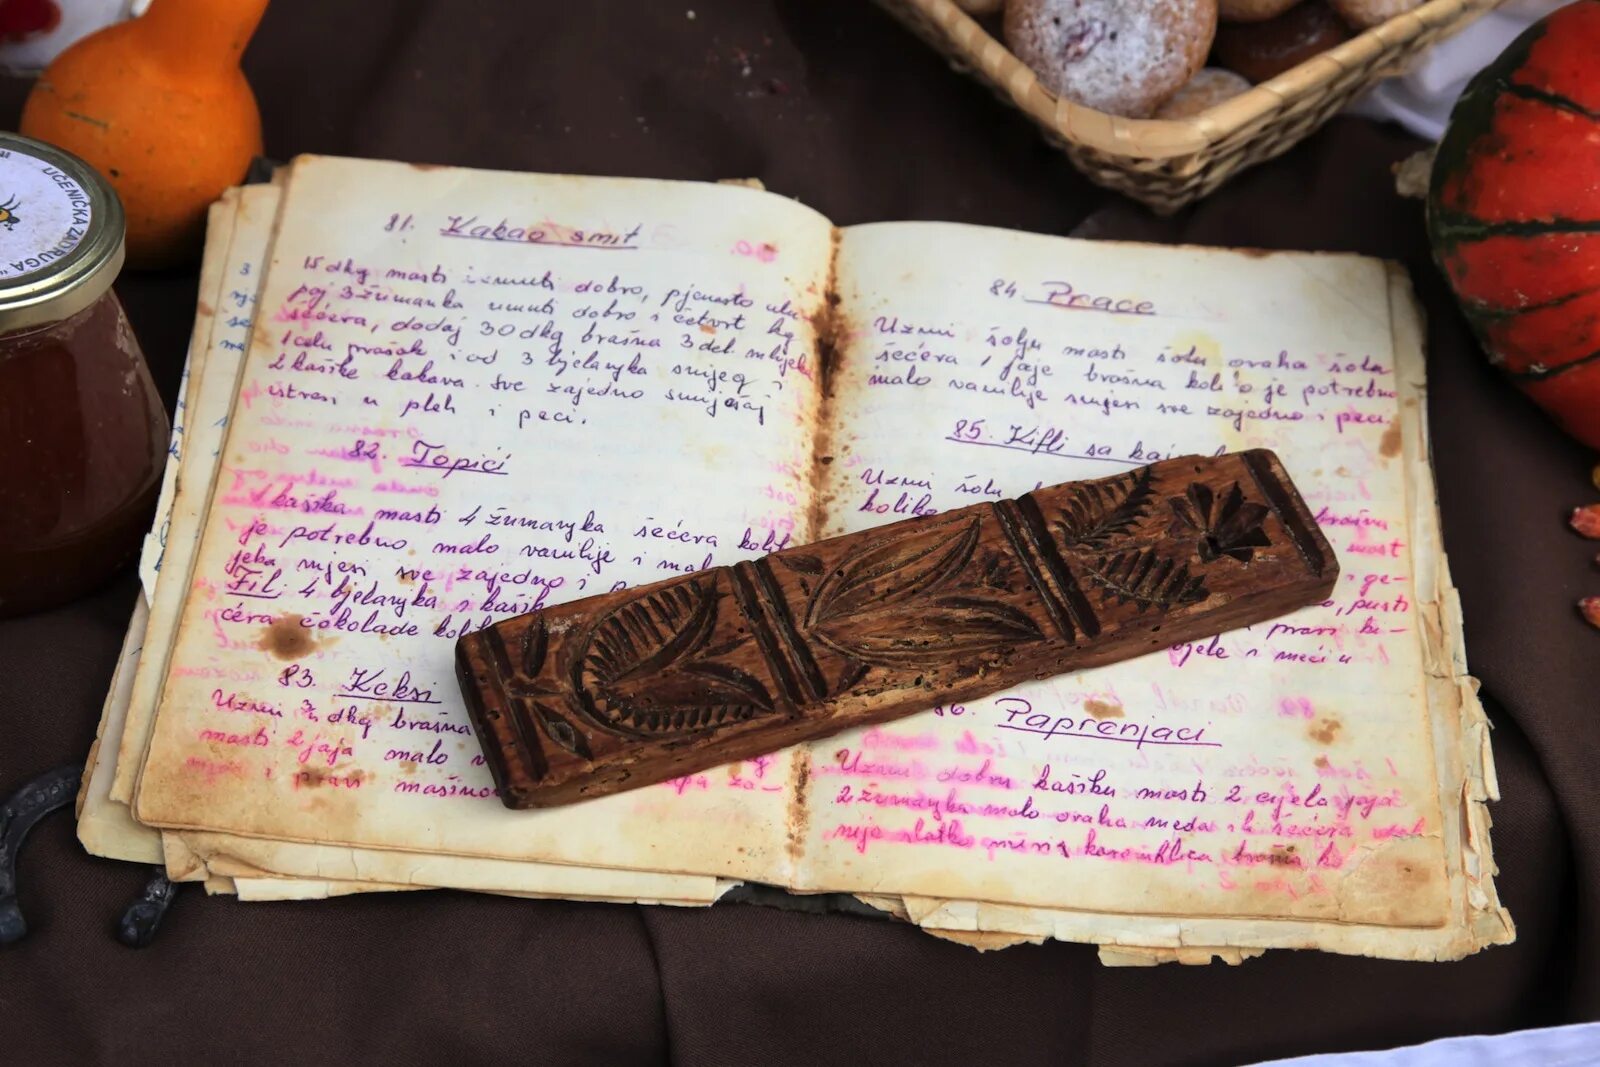 UČENIČKA ZADRUGA "
81. Kakao smit
15 dkg masti izmuti dobro, pjenasto
poj 3 žumanka umuti dobro i četvrt kg
šećera, dodaj 30 dkg brašna 3 del. mlijeka
1 celu prašak i od 3 bjelanjka snijeg i
2 kašike kakava. Sve zajedno smiješaj
istresi u pleh i peci.
82. Topići
1 kašika masti 4 žumanjka šećera
je potrebno malo vanilije i malo
mjesi sve zajedno i
Fil: 4 bjelanjka i
ćera čokolade
83. Keksi
Uzmi dkg brašna
masti 2 jaja malo
i pravi mašinom
84. Prace
Uzmi šolju masti šolu oraha šolu
šećera 1 jaje brašna koliko je potrebno
malo vanilije mjesi sve zajedno i peci.
85. Kifli sa
Uzmi šolu
koliko
brašna
mast
i ge-
pusti
pravi ki-
i meći u
Paprenjaci
Uzmi dobru kašiku masti 2 cijela jaja
2 žumanjka malo oraha meda šećera
nije slatko brašna